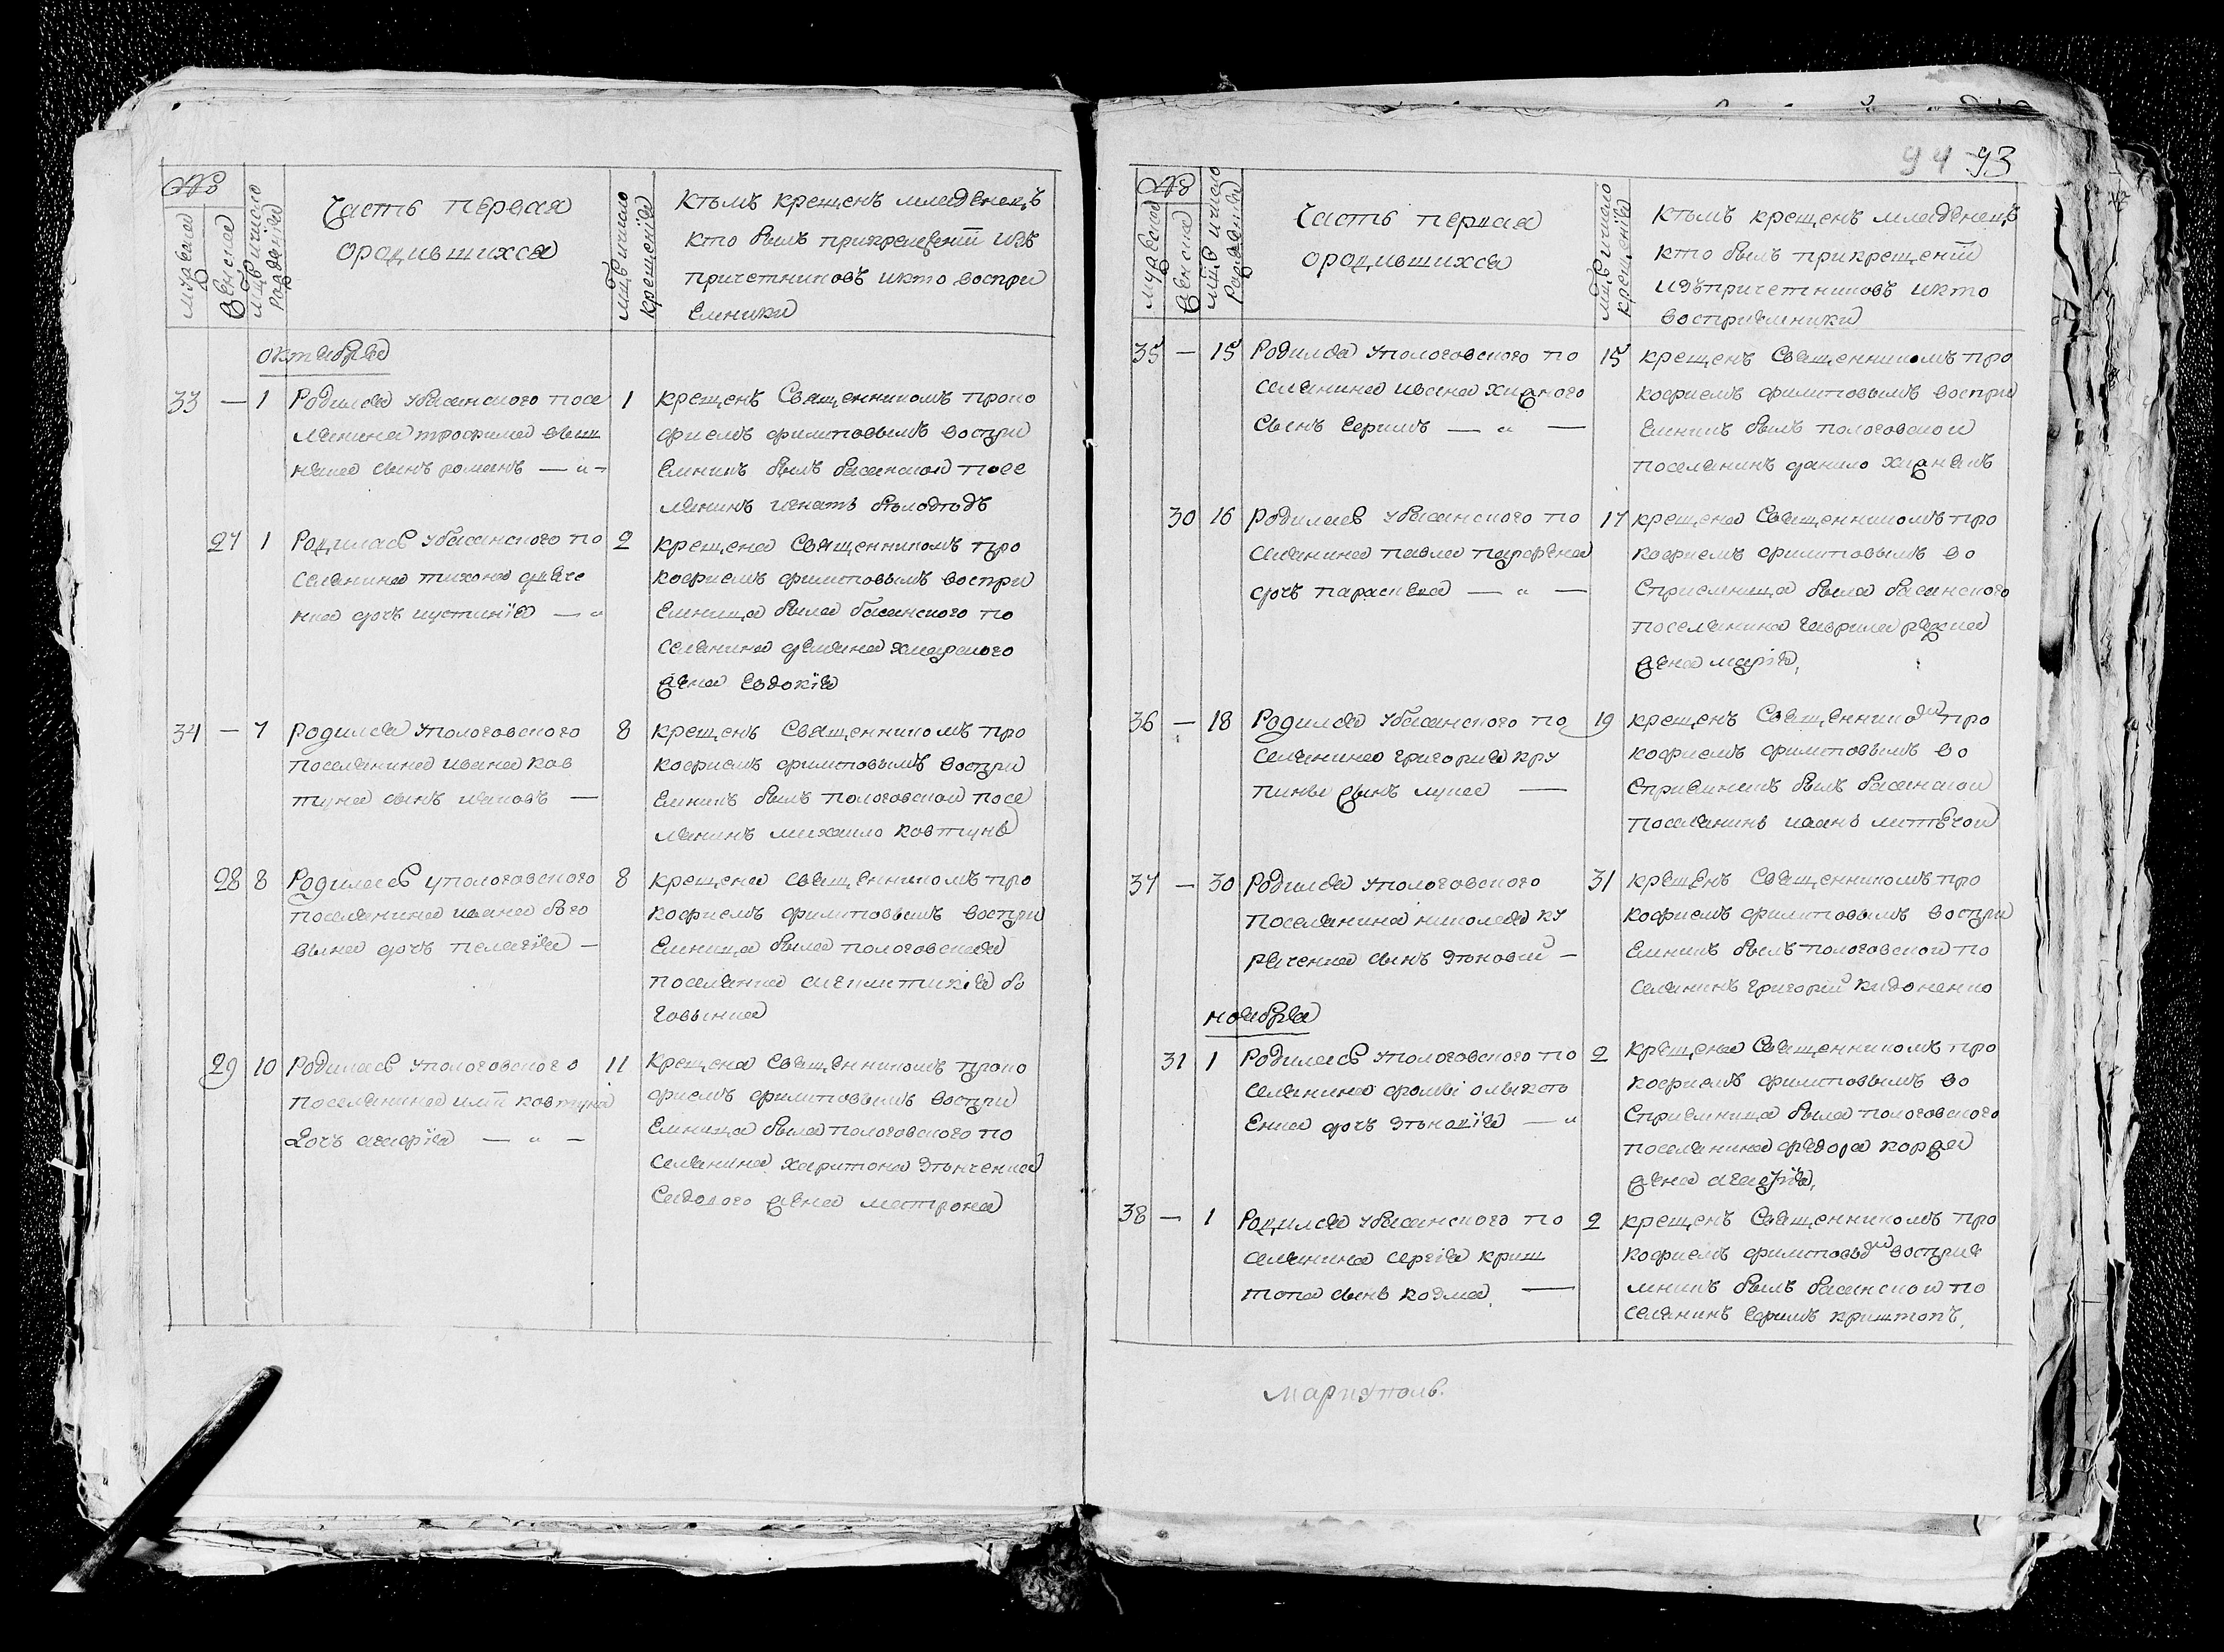 №
мужеска
женска
мцъ и число
рожденїя
Часть первая
ородившихся
мцъ и число
крещенїя
Кѣмъ крещенъ младенецъ
кто былъ прикрещенїи изъ
причетниковъ икто воспри
емники
октября
33 — 1 Родился убасанского посе
лянина трофима
сынъ романъ — „ —
1 крещенъ Священникомъ проко
фиемъ филиповымъ воспри
емникъ былъ басанской посе
лянинъ игнатъ
27 1 Родилась убасанского по
селянина тихона дяче
нка дочъ иустинїя — „
2 крещена Священникомъ про
кофиемъ филиповымъ воспри
емница была басанского по
селянина демяна хмарского
жена Евдокїя
34 — 7 родился упологовского
поселянина ивана ков
туна сынъ иаковъ —
8 крещенъ Священникомъ про
кофиемъ филиповымъ воспри
емникъ былъ пологовской посе
лянинъ михаило ковтунъ
28 8 Родилась упологовского
поселянина ивана бого
вына дочъ пелагїя —
8 крещена священникомъ про
кофиемъ филиповымъ воспри
емница была пологовская
поселянка бо
говынка
29 10 Родилась упологовского
поселянина ковтуна
дочъ агафїя — „ —
11 крещена священникомъ проко
фиемъ филиповымъ воспри
емница была пологовского по
селянина харитона зѣнченка
Садового жена матрона
94 93
№
мужеска
женска
мцъ и число
рожденїя
Часть первая
ородившихся
мцъ и число
крещенїя
Кѣмъ крещенъ младенецъ
кто былъ прикрещенїи
изъпричетниковъ икто
восприемники
35 — 15 Родился упологовского по
селянина ивана хижного
сынъ Ефимъ — „ —
15 крещенъ Священникомъ про
кофиемъ филиповымъ воспри
емникъ былъ пологовской
поселянинъ данило хижнякъ
30 16 родилась убасанского по
селянина павла парфена
дочъ параскева — „ —
17 крещена Священникомъ про
кофиемъ филиповымъ во
сприемница была басанского
поселянина гаврила
жена марїя,
36 — 18 Родился убасанского по
селянина григория кру
пины сынъ лука —
19 крещенъ Священникомъ про
кофиемъ филиповымъ во
сприемникъ былъ басанской
поселянинъ иванъ
37 — 30 Родился упологовского
поселянина николая ку
раченка сынъ зѣновий —
31 крещенъ Священникомъ про
кофиемъ филиповымъ воспри
емникъ былъ пологовской по
селянинъ григорий кидоненко
ноября
31 1 Родилась упологовского по
селянина фомы олыксѣ
енка дочъ зѣновїя — „
2 крещена Священникомъ про
кофиемъ филиповымъ во
сприемница была пологовского
поселянина федора коржа
жена агафїя,
38 — 1 Родился убасанского по
селянина сергїя криш
топа сынъ козма —
2 крещенъ Священникомъ про
кофиемъ филиповым восприе
мникъ былъ басанской по
селянинъ Ефимъ криштопъ,
мариуполь.